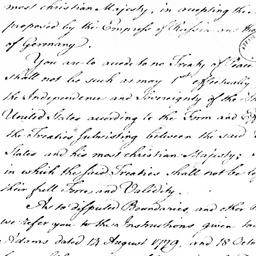 most christian Majesty, in accepting the
proposed by the Empress of Russia and the
of Germany.
You are to accede to no Treaty of Peace
shall not be such as may 1st effectually
the Independence and Sovereignty of the
United States according to the Form and
the Treaties subsisting between the said
States and his most christian Majesty;
in which the said Treaties shall not be le
their full Force and Validity.
As to disputed Boundaries, and other
we refer you to the Instructions given
Adams dated 14 August 1779, and 18 Octo